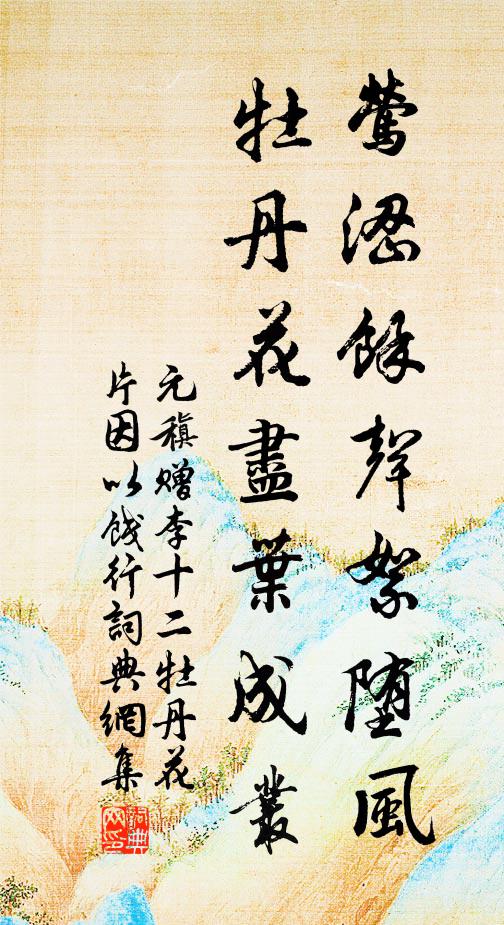 鶯澀餘聲絮墮風
牡丹花盡葉成叢
元稹贈李十二牡丹花
片因以餞行詞典網集
詞典
网印